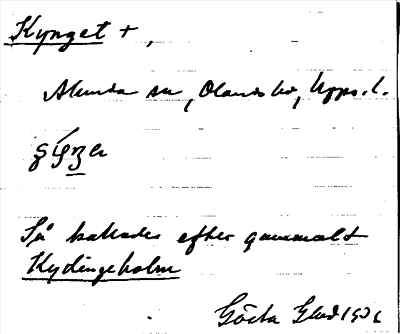 Kynget +,
Alunda sn, Olands hd, Upps. l.
Så kallades efter gammalt
Kydingeholm
Gösta